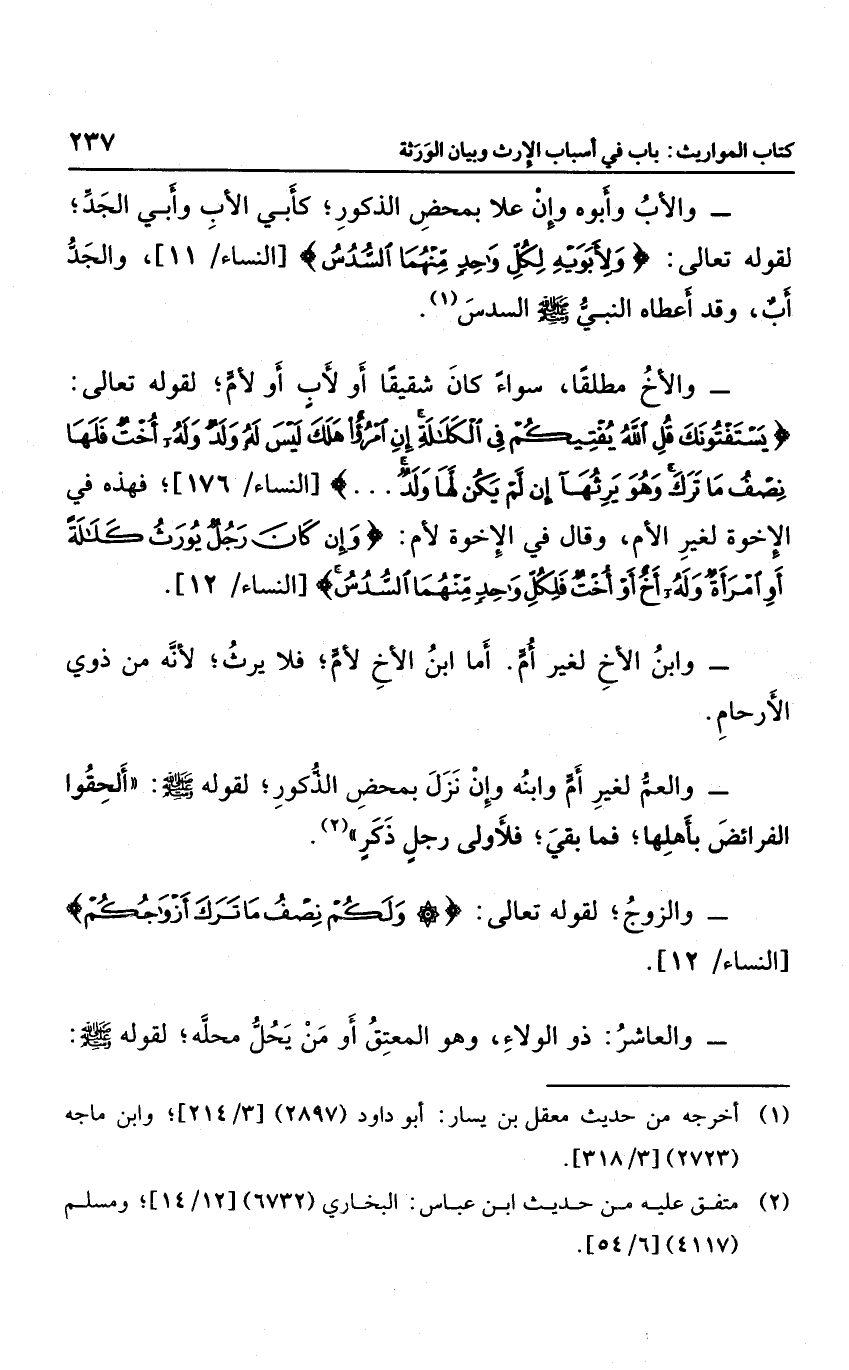 كتاب المواريث: باب في أسباب الإرث وبيان الوَرَثة ٢٣٧
ــ والأبُ وأَبوه وإِنْ علا بمحضِ الذكورِ؛ كأَبي الأبِ وأَبي الجَدِّ؛
لقوله تعالى: ﴿ وَلِأَبَوَيْهِ لِكُلِّ وَٰحِدٍ مِّنْهُمَا ٱلسُّدُسُ ﴾ [النساء/ ١١]، والجَدُّ
أَبٌ، وقد أَعطاه النبيُّ ﷺ السدسَ(١).
ــ والأخُ مطلقًا، سواءً كانَ شقيقًا أَو لأَبٍ أَو لأمٍّ؛ لقوله تعالى:
﴿ يَسْتَفْتُونَكَ قُلِ ٱللَّهُ يُفْتِيكُمْ فِى ٱلْكَلَٰلَةِ ۚ إِنِ ٱمْرُؤٌا۟ هَلَكَ لَيْسَ لَهُۥ وَلَدٌ وَلَهُۥٓ أُخْتٌ فَلَهَا
نِصْفُ مَا تَرَكَ ۚ وَهُوَ يَرِثُهَآ إِن لَّمْ يَكُن لَّهَا وَلَدٌ ۚ . . . ﴾ [النساء/ ١٧٦]؛ فهذه في
الإِخوة لغيرِ الأم، وقال في الإِخوة لأم: ﴿ وَإِن كَانَ رَجُلٌ يُورَثُ كَلَٰلَةً
أَوِ ٱمْرَأَةٌ وَلَهُۥٓ أَخٌ أَوْ أُخْتٌ فَلِكُلِّ وَٰحِدٍ مِّنْهُمَا ٱلسُّدُسُ ۚ﴾ [النساء/ ١٢].
ــ وابنُ الأخِ لغير أُمٍّ. أَما ابنُ الأخِ لأمٍّ؛ فلا يرثُ؛ لأنَّه من ذوي
الأَرحامِ.
ــ والعمُّ لغيرِ أَمٍّ وابنُه وإِنْ نَزَلَ بمحضِ الذُّكورِ؛ لقوله ﷺ: «أَلحِقُوا
الفرائضَ بأَهلِها؛ فما بقيَ؛ فلأَولى رجلٍ ذَكَرٍ»(٢).
ــ والزوجُ؛ لقوله تعالى: ﴿ ۞ وَلَكُمْ نِصْفُ مَا تَرَكَ أَزْوَٰجُكُمْ﴾
[النساء/ ١٢].
ــ والعاشرُ: ذو الولاءِ، وهو المعتِقُ أَو مَنْ يَحُلُّ محله؛ لقوله ﷺ:
(١) أخرجه من حديث معقل بن يسار: أبو داود (٢٨٩٧) [٣/ ٢١٤]؛ وابن ماجه
(٢٧٢٣) [٣/ ٣١٨].
(٢) متفق عليه من حديث ابن عباس: البخاري (٦٧٣٢) [١٢/ ١٤]؛ ومسلم
(٤١١٧) [٦/ ٥٤].